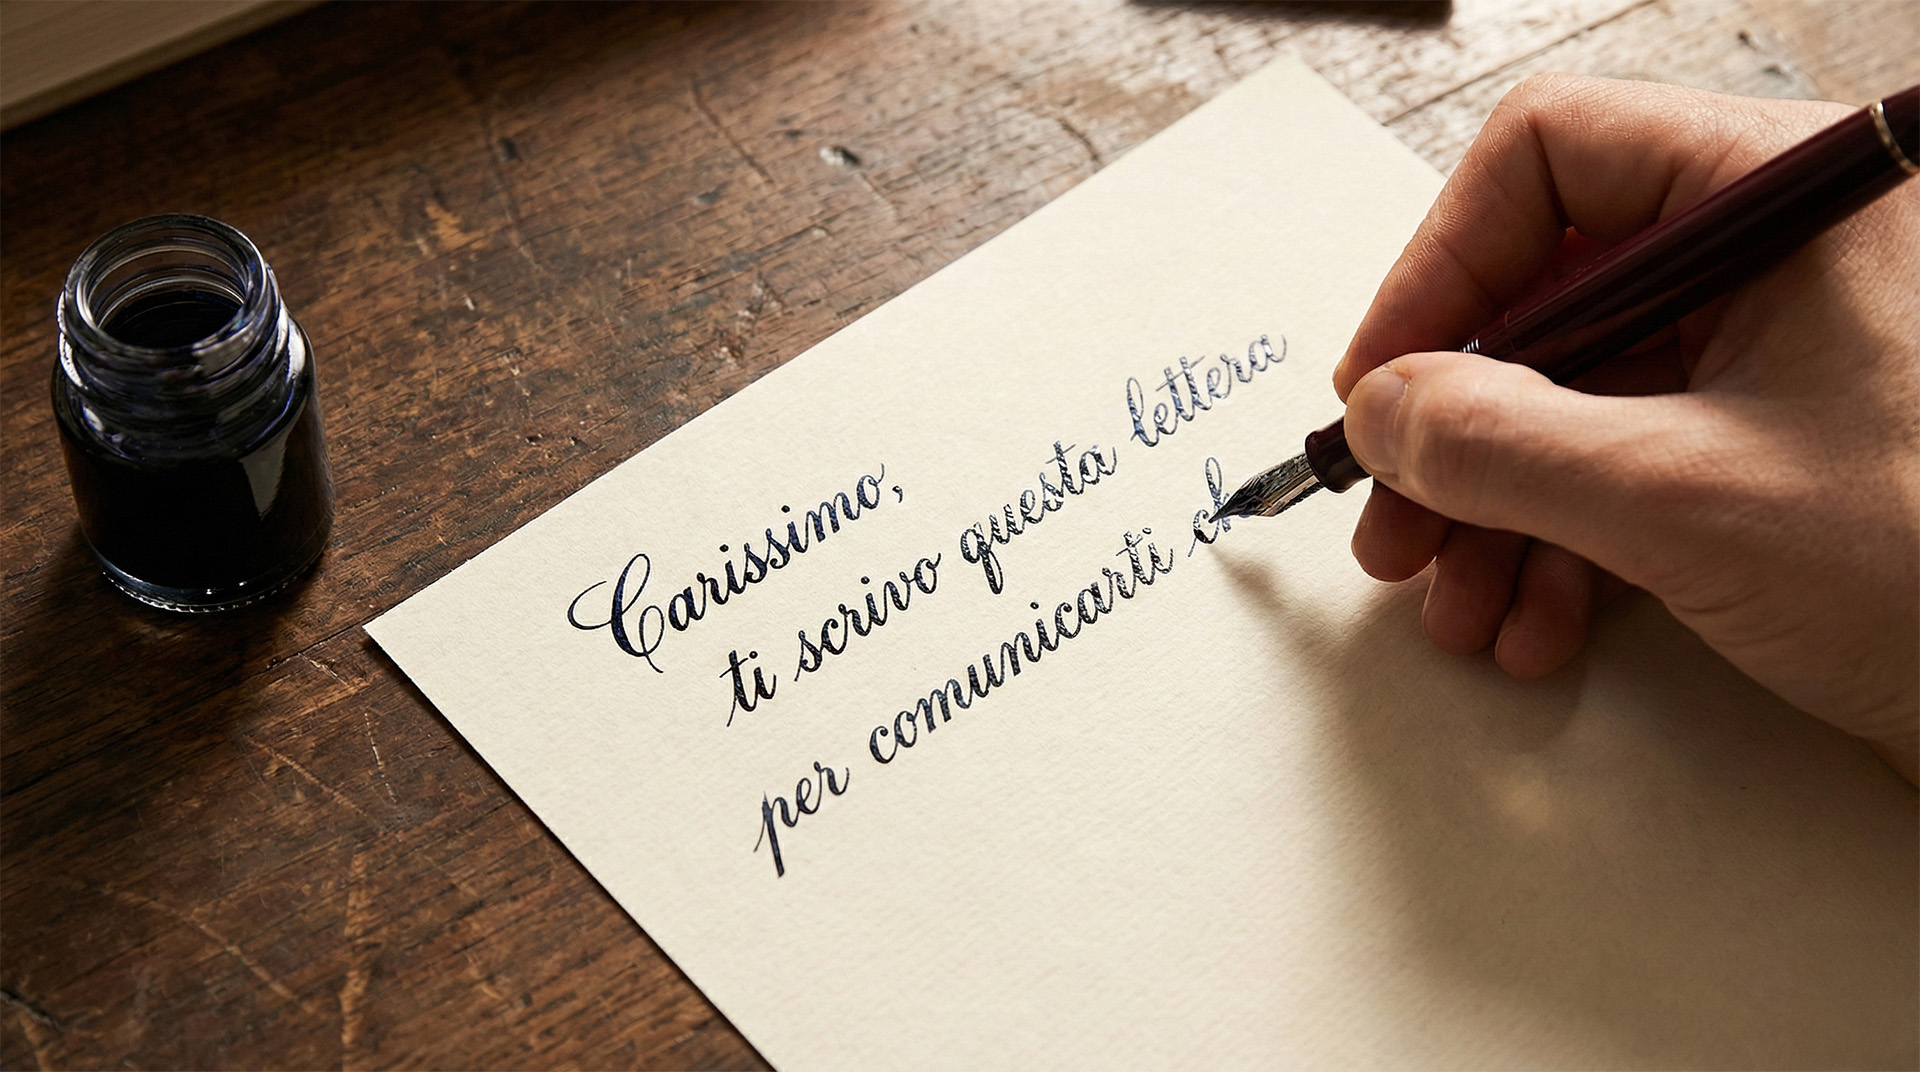 Carissimo,
ti scrivo questa lettera
per comunicarti ch